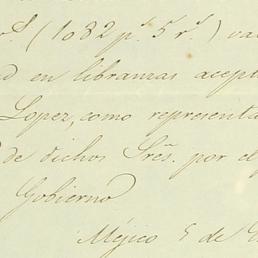 r.s (1082 p.s 5 r.s) va
ad en libranzas acept
Lopez, como representa
de dichos Sres. por el
Gobierno
Mejico 5 de